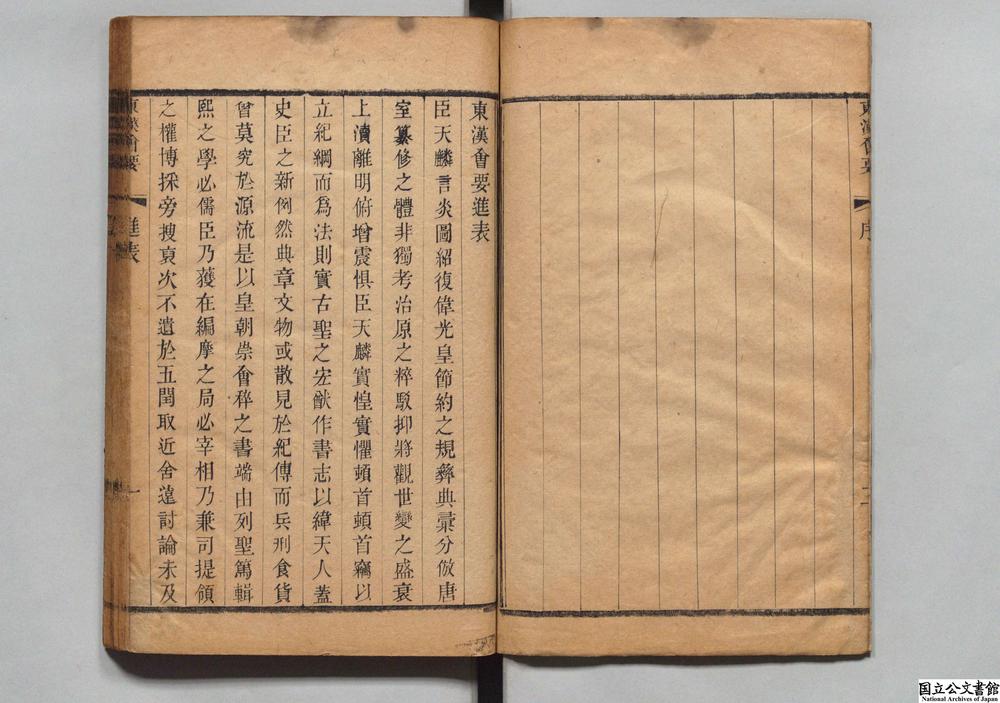 東漢會要
序
二
東漢會要進表
臣天麟言炎圖紹復偉光皇節約之規彝典彙分倣唐
室纂修之體非獨考治原之粹駁抑將觀世變之盛衰
上瀆離明俯增震惧臣天麟實惶實懼頓首頓首竊以
立紀綱而爲法則實古聖之宏猷作書志以緯天人蓋
史臣之新例然典章文物或散見於紀傳而兵刑食貨
曾莫究於源流是以皇朝崇會稡之書端由列聖篤輯
熙之學必儒臣乃䕶在編摩之局必宰相乃兼司提領
之權博採旁搜裒次不遺於五閏取近舍遠討論未及
東漢會要
進表
一
国立公文書館
National Archives of Japan